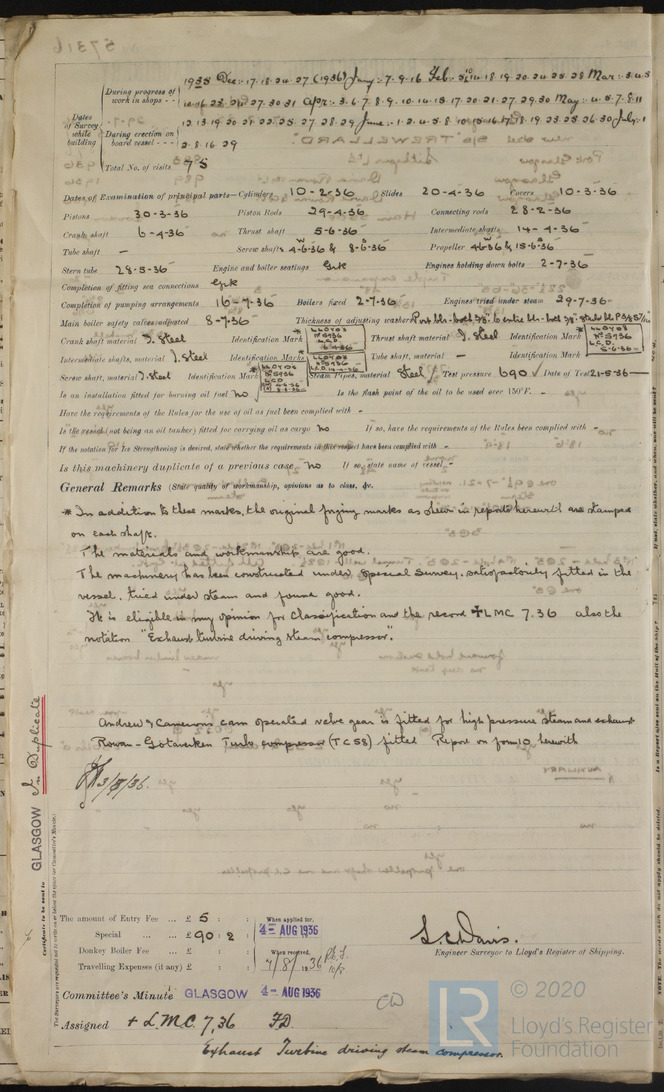 During progress of work in shops - - 1935 Dec: 17. 18. 24. 27 (1936) Jany: 7. 9. 16 Feb: 14. 18. 19. 20. 24. 25. 28 Mar: 3. 4. 5
10. 16. 23. 24. 27. 30. 31 Apr: 3. 6. 7. 8. 9. 10. 14. 15. 17. 20. 21. 27. 29. 30 May: 4. 5. 7. 8. 11
Dates of Survey while building
During erection on board vessel - - - 12. 13. 19. 20. 21. 22. 25. 27. 28. 29 June: 1. 2. 4. 5. 8. 10. 15. 16. 17. 18. 19. 23. 25. 26. 30 July: 1
2. 8. 16. 29
Total No. of visits 75
Dates of Examination of principal parts—Cylinders 10-2-36 Slides 20-4-36 Covers 10-3-36
Pistons 30-3-36 Piston Rods 29-4-36 Connecting rods 28-2-36
Crank shaft 6-4-36 Thrust shaft 5-6-36 Intermediate shafts 14-4-36
Tube shaft — Screw shafts 4-6-36 & 8-6-36 Propeller 4-6-36 & 15-6-36
Stern tube 28-5-36 Engine and boiler seatings Gck Engines holding down bolts 2-7-36
Completion of fitting sea connections Gck
Completion of pumping arrangements 16-7-36 Boilers fixed 2-7-36 Engines tried under steam 29-7-36-
Main boiler safety valves adjusted 8-7-36 Thickness of adjusting washers
Crank shaft material I. Steel Identification Mark * LLOYDS No 5436 L.C.D. 6-4-36 Thrust shaft material I. Steel Identification Mark * LLOYDS No 5436 L.C.D. 5-6-36
Intermediate shafts, material I. Steel Identification Marks * LLOYDS No 5436 L.C.D. 14-4-36 Tube shaft, material — Identification Mark —
Screw shaft, material I. Steel Identification Mark * LLOYDS No 5436 L.C.D. Steam Pipes, material Steel Test pressure 690 ✓ Date of Test 21-5-36
Is an installation fitted for burning oil fuel no Is the flash point of the oil to be used over 150°F. -
Have the requirements of the Rules for the use of oil as fuel been complied with -
Is the vessel (not being an oil tanker) fitted for carrying oil as cargo no If so, have the requirements of the Rules been complied with -
If the notation for Ice Strengthening is desired, state whether the requirements in this respect have been complied with -
Is this machinery duplicate of a previous case no If so, state name of vessel -
General Remarks (State quality of workmanship, opinions as to class, &c.
* In addition to these marks, the original forging marks as shewn in reports herewith are stamped
on each shaft.
The materials and workmanship are good.
The machinery has been constructed under special survey, satisfactorily fitted in the
vessel, tried under steam and found good.
It is eligible in my opinion for Classification and the record ✠ LMC 7.36 also the
notation "Exhaust turbine driving steam compressor".
Andrew & Camerons cam operated valve gear is fitted for high pressure steam and exhaust
Rowan-Gotaverken Turbo compressor (TC 58) fitted Report on form 10 herewith
3/8/36.
GLASGOW In Duplicate
Certificate to be sent to
The amount of Entry Fee ... £ 5 : :
Special ... £ 90 : 2 :
Donkey Boiler Fee ... £ : :
Travelling Expenses (if any) £ : :
When applied for,
4- AUG 1936
When received,
7/8/1936
10/8
L. C. Davis.
Engineer Surveyor to Lloyd's Register of Shipping.
Committee's Minute GLASGOW 4- AUG 1936
Assigned + L.M.C. 7,36 F.D.
Exhaust Turbine driving steam compressor.
LR © 2020
Lloyd's Register
Foundation